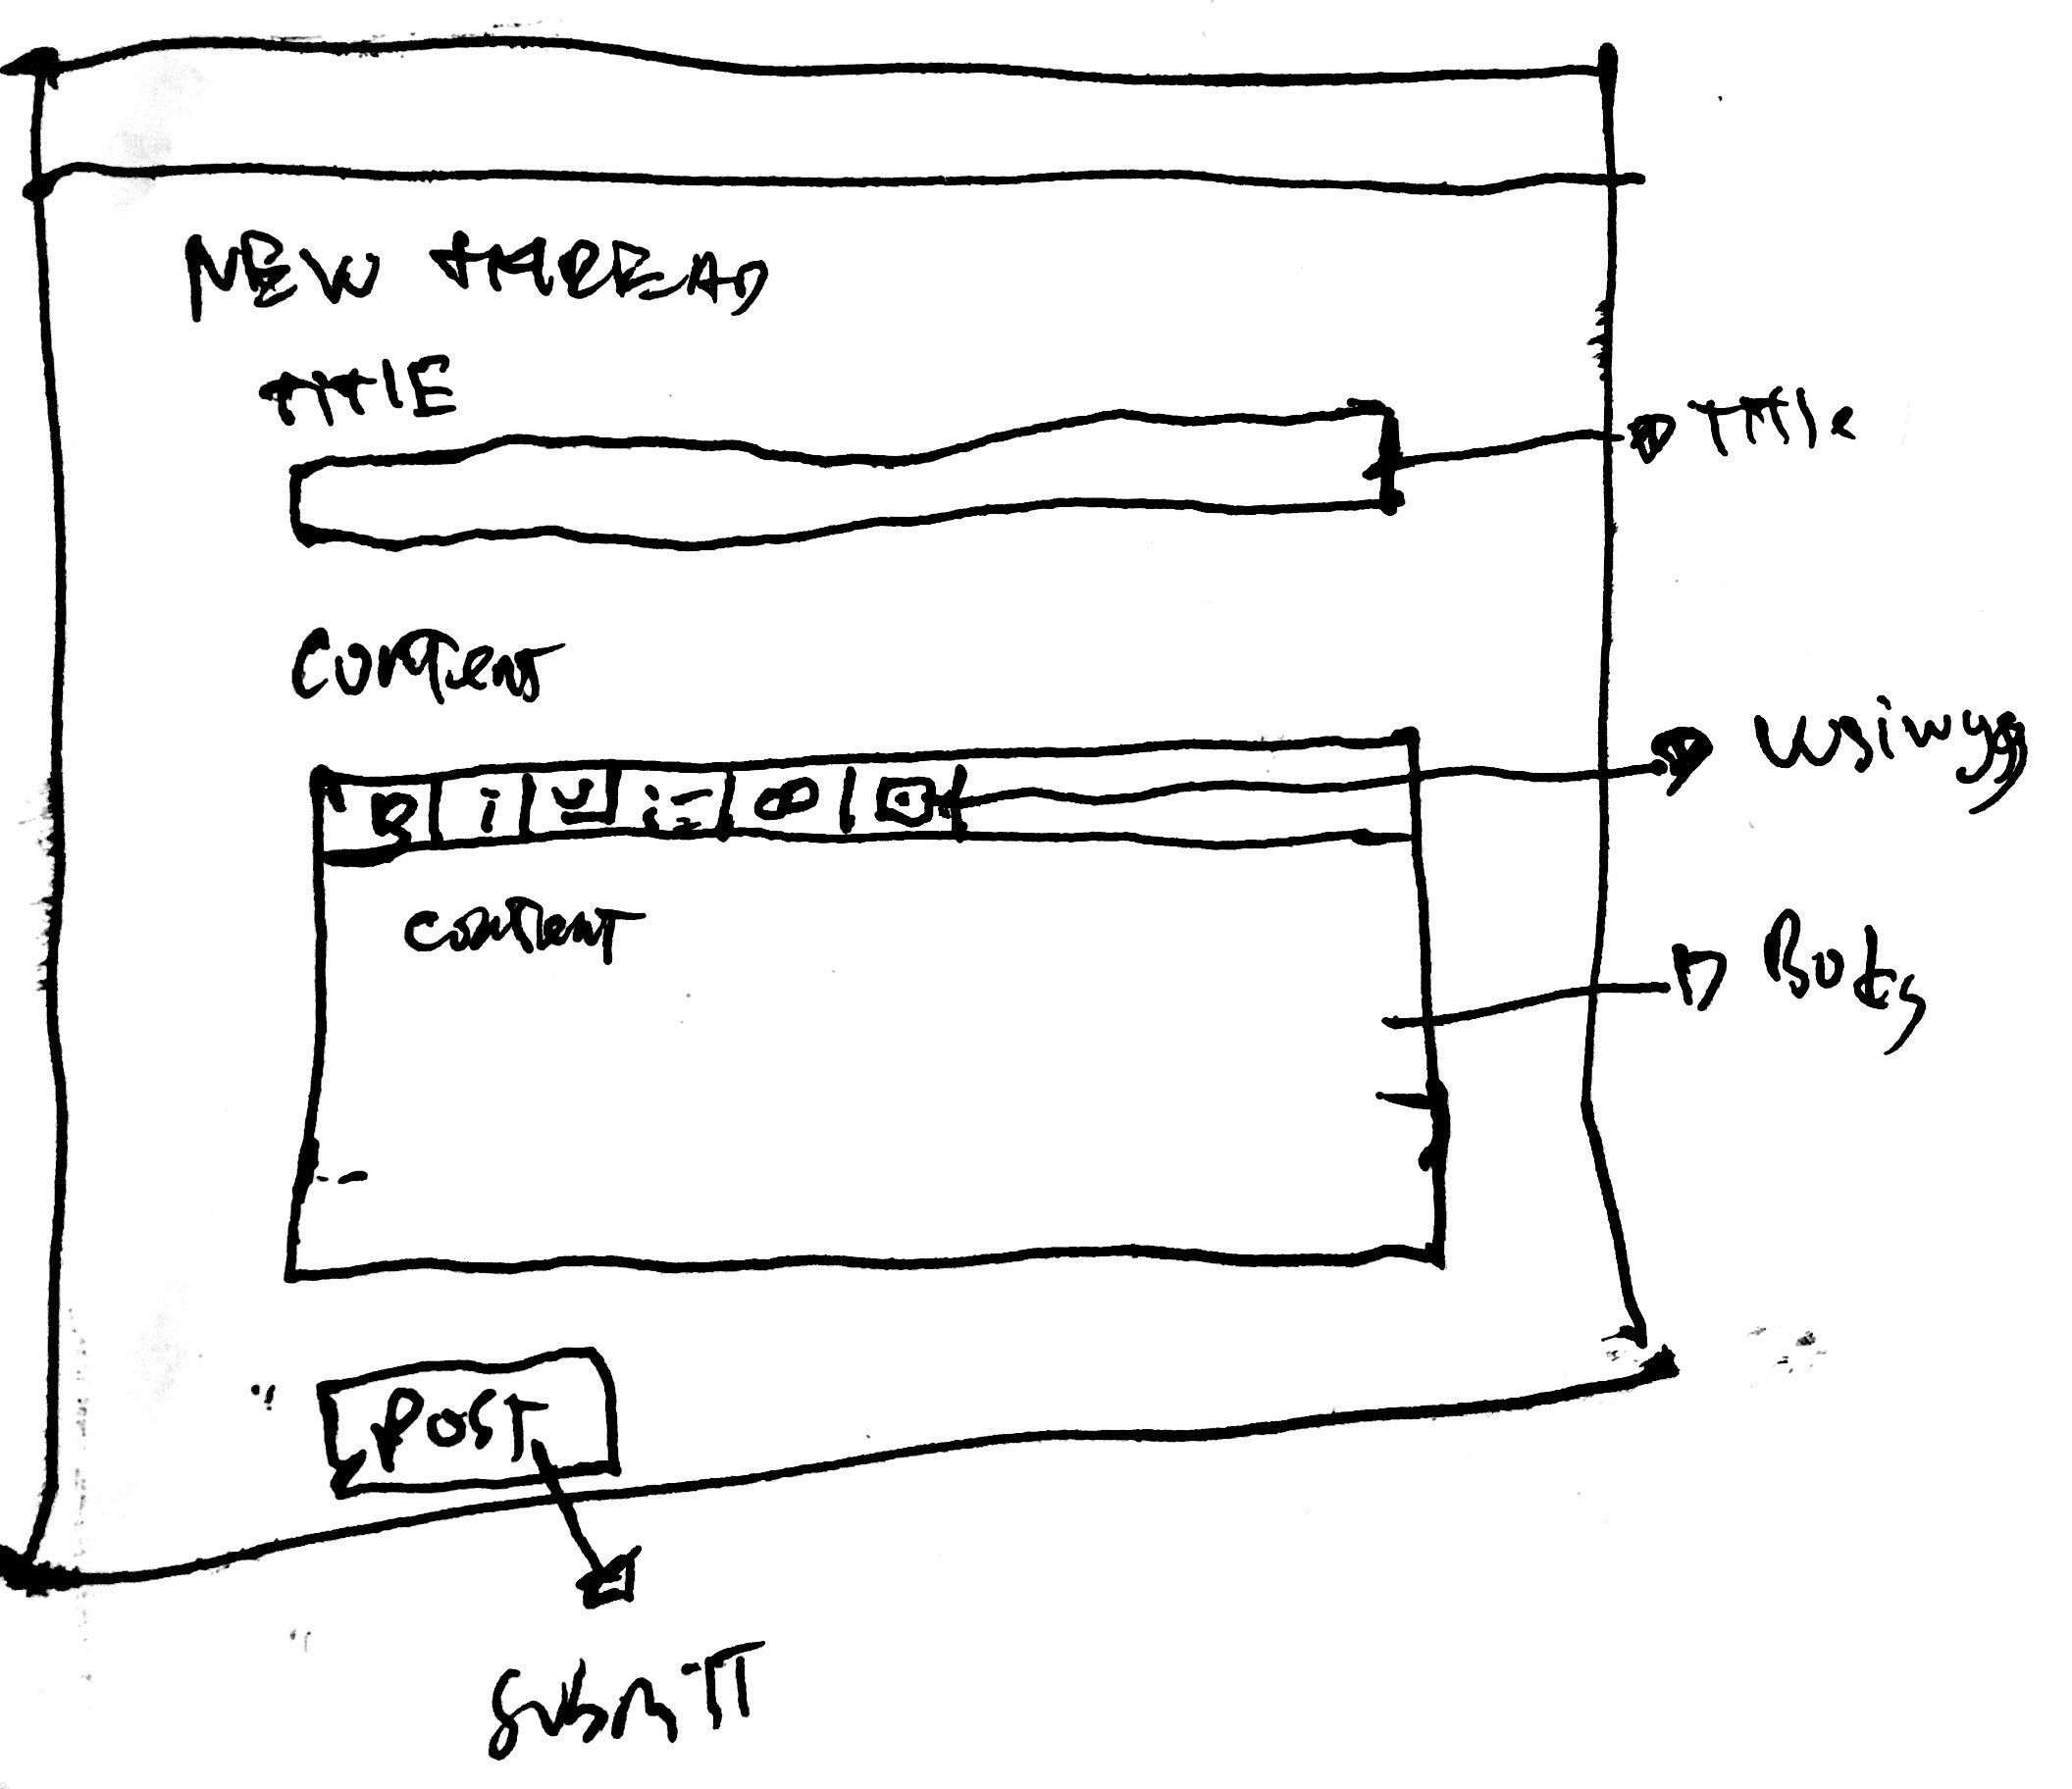 NEW THREAD
TITLE
Title
Content
Wsiwyg
B i U
Content
Body
POST
SUBMIT